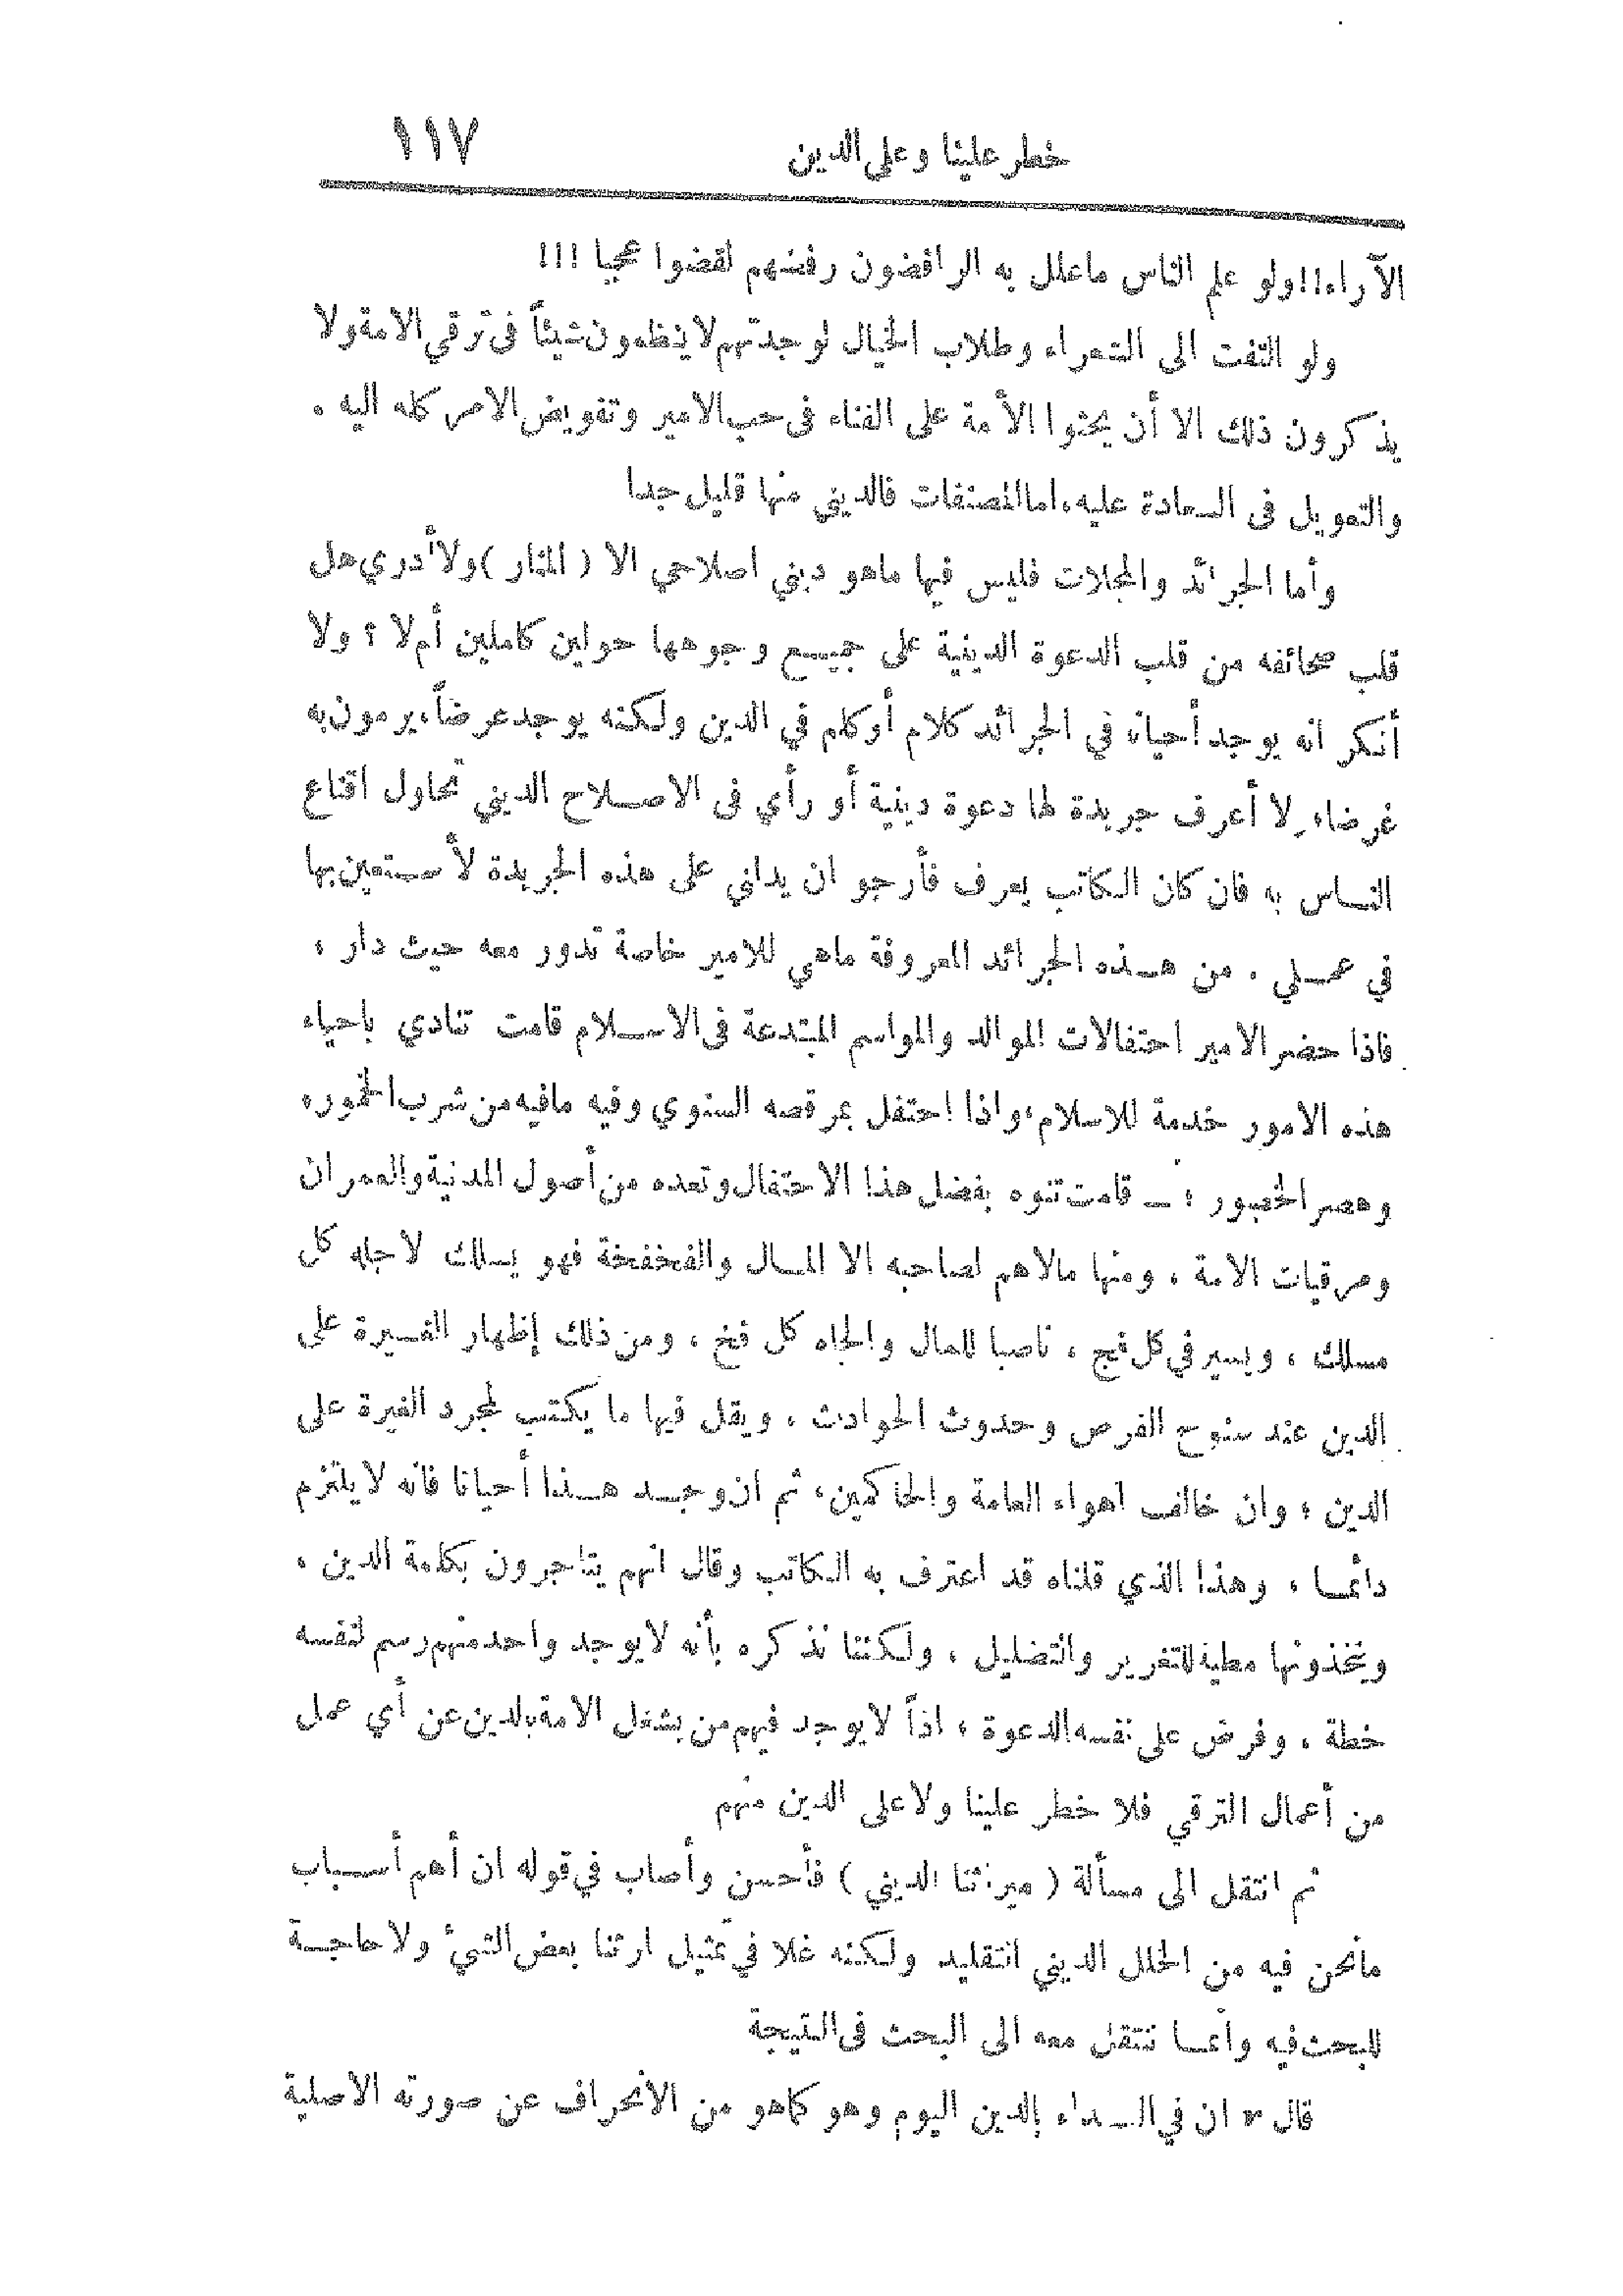 خطر علينا وعلى الدين ١١٧
الآراء!! ولو علم الناس ماعلل به الرافضون رفضهم لقضوا عجبا !!!
ولو التفت الى الشعراء وطلاب الخيال لوجدتهم لا ينظمون شيئاً فى ترقي الامة ولا
يذكرون ذلك الا أن يحثوا الأمة على الفناء فى حب الامير وتفويض الامر كله اليه .
والتعويل فى السعادة عليه، اما المصنفات فالديني منها قليل جدا
وأما الجرائد والمجلات فليس فيها ماهو ديني اصلاحي الا ( المنار ) ولا أدري هل
قلب صحائفه من قلب الدعوة الدينية على جميع وجوهها حولين كاملين أم لا ؟ ولا
أنكر انه يوجد أحيانا في الجرائد كلام أو كلم في الدين ولكنه يوجد عرضاً، يرمون به
غرضا، ولا أعرف جريدة لها دعوة دينية أو رأي فى الاصلاح الديني تحاول اقناع
الناس به فان كان الكاتب يعرف فأرجو ان يدلني على هذه الجريدة لأستعين بها
في عملي . من هذه الجرائد المعروفة ماهي للامير خاصة تدور معه حيث دار ،
فاذا حضر الامير احتفالات الموالد والمواسم المبتدعة فى الاسلام قامت تنادي باحياء
هذه الامور خدمة للاسلام، واذا احتفل بمرقصه السنوي وفيه مافيه من شرب الخمور،
وهصر الخصور ؛ ـ قامت تنوه بفضل هذا الاحتفال وتعده من أصول المدنية والعمران
ومرقيات الامة ، ومنها مالاهم لصاحبه الا المال والفخفخة فهو يسلك لاجله كل
مسلك ، ويسير في كل فج ، ناصبا للمال والجاه كل فخ ، ومن ذلك إظهار الغيرة على
الدين عند سنوح الفرص وحدوث الحوادث ، ويقل فيها ما يكتب لمجرد الغيرة على
الدين ؛ وان خالف اهواء العامة والحاكمين، ثم ان وجد هذا أحيانا فانه لا يلتزم
دائما ، وهذا الذي قلناه قد اعترف به الكاتب وقال انهم يتاجرون بكلمة الدين ،
ويتخذونها مطية للتغرير والتضليل ، ولكننا نذكره بأنه لا يوجد واحد منهم رسم لنفسه
خطة ، وفرض على نفسه الدعوة ؛ اذاً لا يوجد فيهم من يشغل الامة بالدين عن أي عمل
من أعمال الترقي فلا خطر علينا ولا على الدين منهم
ثم انتقل الى مسألة ( ميراثنا الديني ) فأحسن وأصاب في قوله ان أهم أسباب
مانحن فيه من الخلل الديني التقليد ولكنه غلا في تمثيل ارثنا بعض الشيء ولا حاجة
للبحث فيه وانما ننتقل معه الى البحث فى النتيجة
قال « ان في النداء بالدين اليوم وهو كماهو من الانحراف عن صورته الاصلية